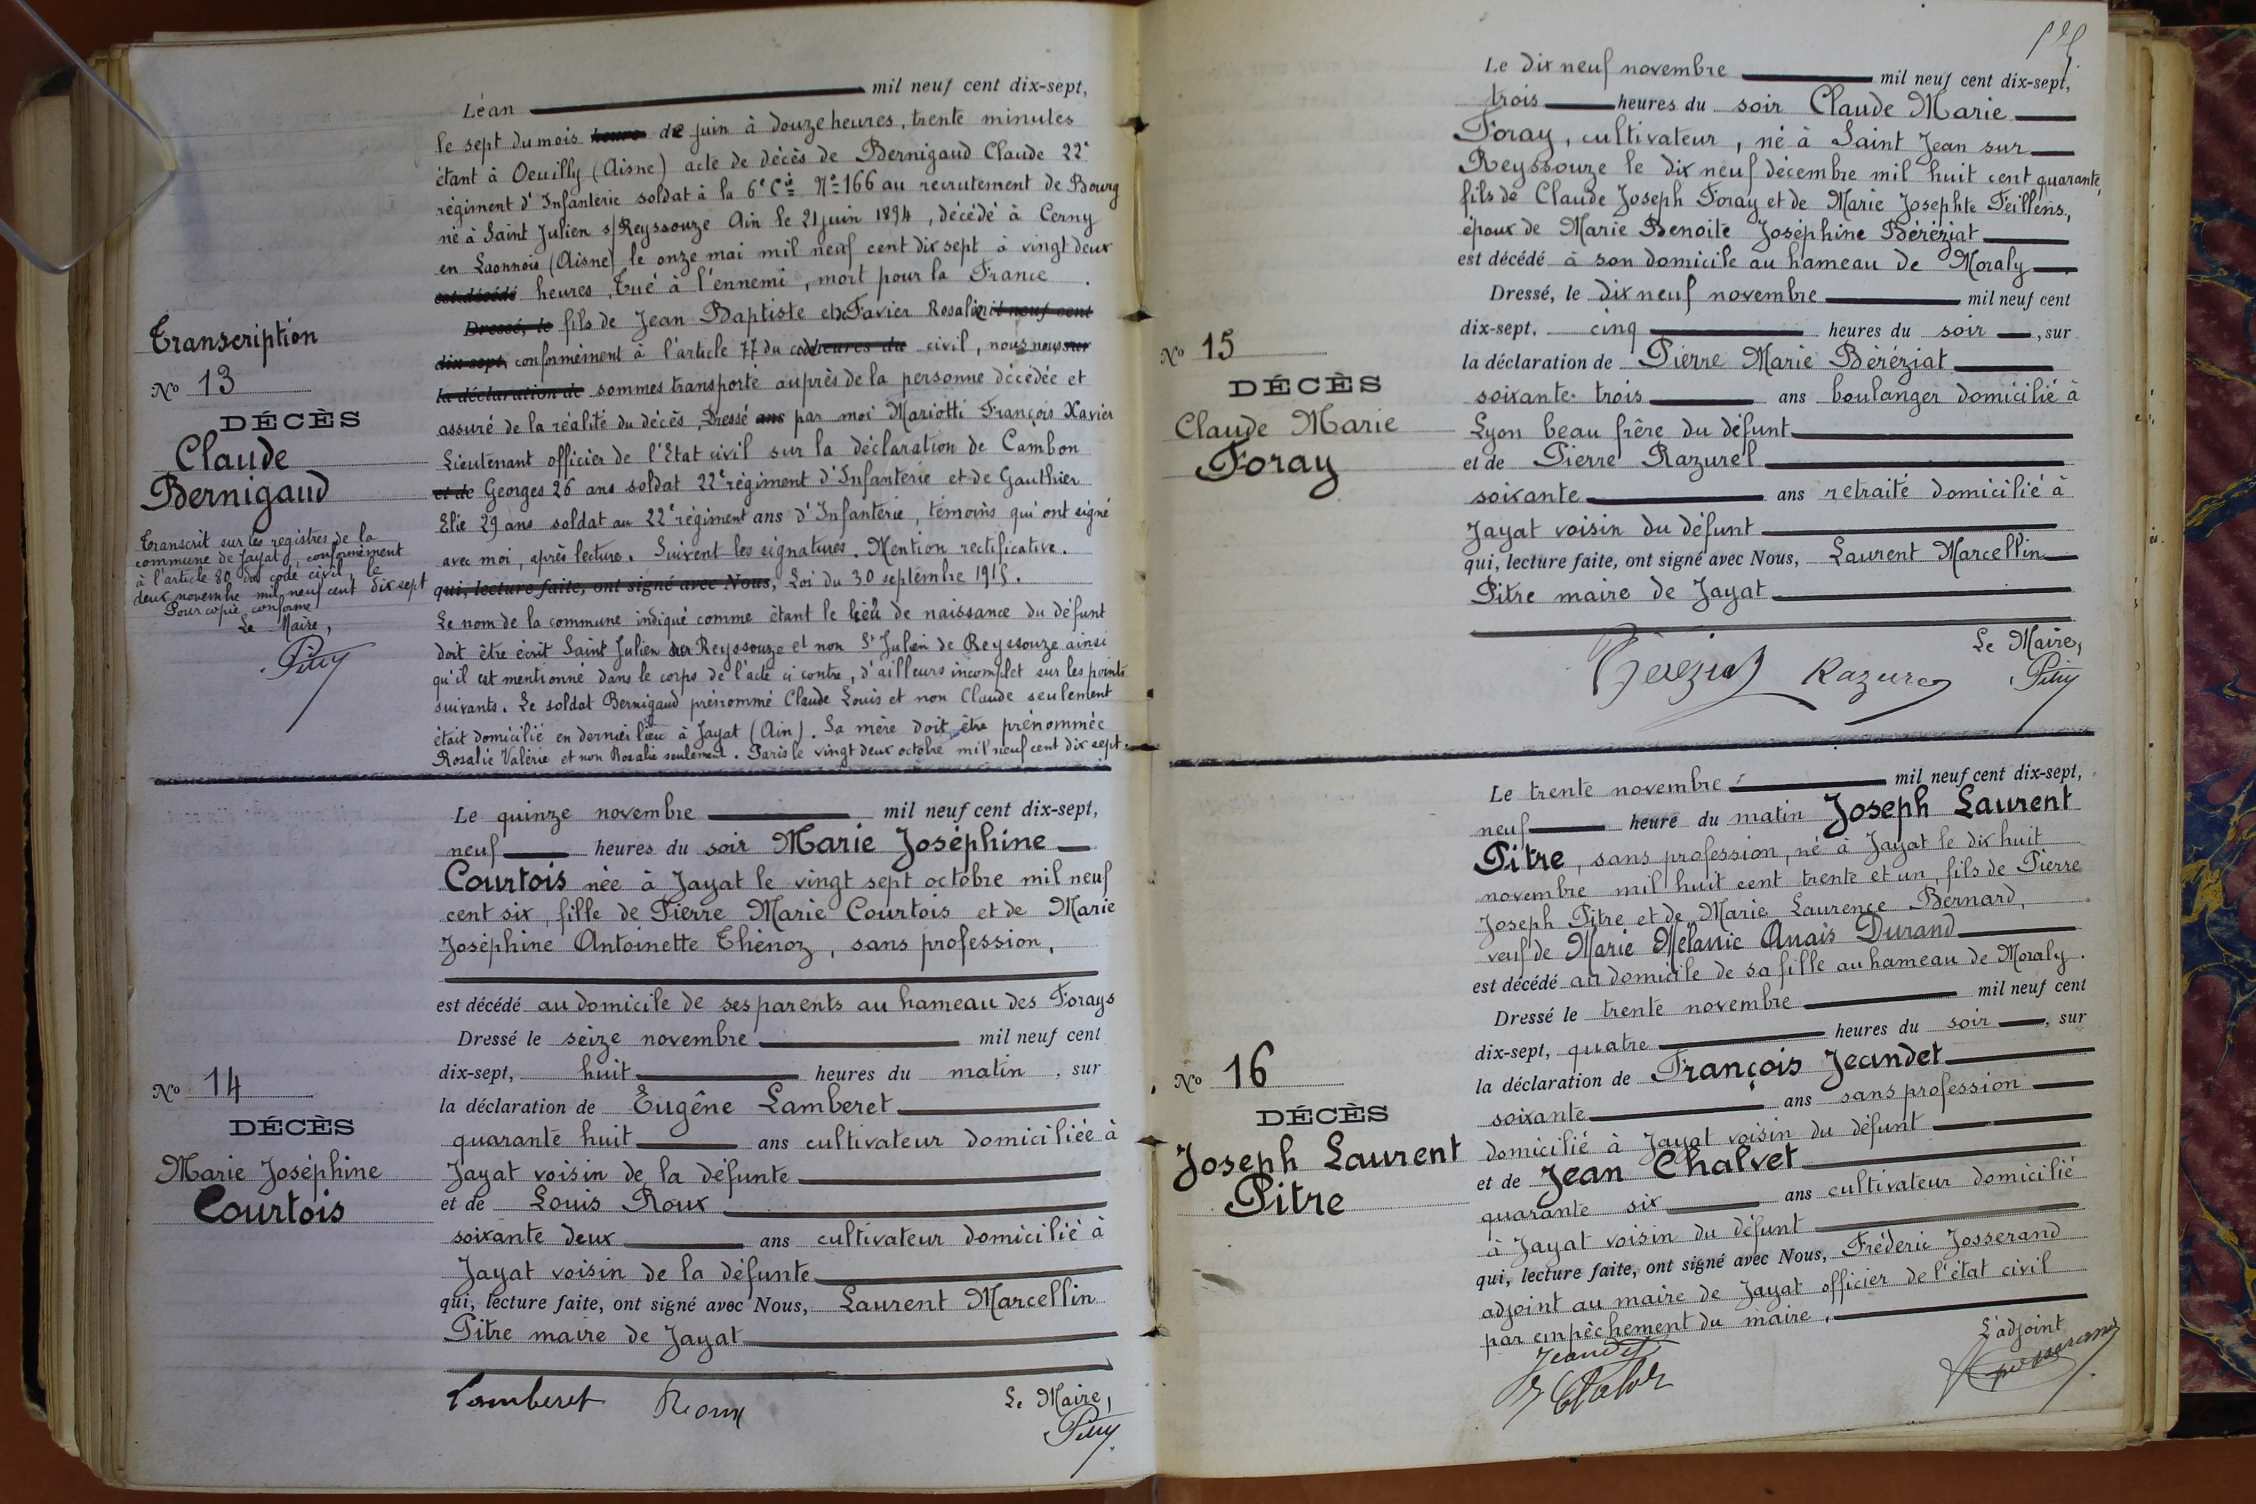 Transcription
No 13
DÉCÈS
Claude
Bernigaud
Transcrit sur les registres de la
commune de Jayat, conformément
à l'article 80 du code civil, le
deux novembre mil neuf cent dix sept
Pour copie conforme
Le Maire,
Pitre
Léan mil neuf cent dix-sept,
le sept du mois heure de juin à douze heures, trente minutes
étant à Oeuilly (Aisne) acte de décès de Bernigaud Claude 22e
régiment d'Infanterie soldat à la 6e Cie No 166 au recrutement de Bourg
né à Saint Julien s/Reyssouze Ain le 21 juin 1894, décédé à Cerny
en Laonnois (Aisne) le onze mai mil neuf cent dix sept à vingt deux
est décédé heures, Tué à l'ennemi, mort pour la France.
Dressé, le fils de Jean Baptiste et de Favier Rosalie mil neuf cent
dix-sept, conformément à l'article 77 du code heures du civil, nous nous sur
la déclaration de sommes transporté auprès de la personne décédée et
assuré de la réalité du décès, Dressé ans par moi Mariotti François Xavier
Lieutenant officier de l'Etat civil sur la déclaration de Cambon
et de Georges 26 ans soldat 22e régiment d'Infanterie et de Gauthier
Elie 29 ans soldat au 22e régiment ans d'Infanterie, témoins qui ont signé
avec moi, après lecture. Suivent les signatures. Mention rectificative.
qui, lecture faite, ont signé avec Nous, Loi du 30 septembre 1915.
Le nom de la commune indiqué comme étant le lieu de naissance du défunt
doit être écrit Saint Julien sur Reyssouze et non St Julien de Reyssouze ainsi
qu'il est mentionné dans le corps de l'acte ci contre, d'ailleurs incomplet sur les points
suivants. Le soldat Bernigaud prénommé Claude Louis et non Claude seulement
était domicilié en dernier lieu à Jayat (Ain). Sa mère doit être prénommée
Rosalie Valérie et non Rosalie seulement. Paris le vingt deux octobre mil neuf cent dix sept.
No 14
DÉCÈS
Marie Joséphine
Courtois
Le quinze novembre mil neuf cent dix-sept,
neuf heures du soir Marie Joséphine
Courtois née à Jayat le vingt sept octobre mil neuf
cent six, fille de Pierre Marie Courtois et de Marie
Joséphine Antoinette Thènoz, sans profession,
est décédé au domicile de ses parents au hameau des Forays
Dressé le seize novembre mil neuf cent
dix-sept, huit heures du matin, sur
la déclaration de Eugêne Lamberet
quarante huit ans cultivateur domiciliée à
Jayat voisin de la défunte
et de Louis Roux
soixante deux ans cultivateur domicilié à
Jayat voisin de la défunte
qui, lecture faite, ont signé avec Nous, Laurent Marcellin
Pitre maire de Jayat
Lamberet Roux Le Maire,
Pitre
No 15
DÉCÈS
Claude Marie
Foray
Le dix neuf novembre mil neuf cent dix-sept,
trois heures du soir Claude Marie
Foray, cultivateur, né à Saint Jean sur
Reyssouze le dix neuf décembre mil huit cent quarante,
fils de Claude Joseph Foray et de Marie Josephte Feillens,
époux de Marie Benoite Joséphine Béréziat
est décédé à son domicile au hameau de Moraly.
Dressé, le dix neuf novembre mil neuf cent
dix-sept, cinq heures du soir, sur
la déclaration de Pierre Marie Béréziat
soixante trois ans boulanger domicilié à
Lyon beau frère du défunt
et de Pierre Razurel
soixante ans retraité domicilié à
Jayat voisin du défunt
qui, lecture faite, ont signé avec Nous, Laurent Marcellin
Pitre maire de Jayat
Le Maire,
Béréziat Razurel Pitre
No 16
DÉCÈS
Joseph Laurent
Pitre
Le trente novembre mil neuf cent dix-sept,
neuf heure du matin Joseph Laurent
Pitre, sans profession, né à Jayat le dix huit
novembre mil huit cent trente et un, fils de Pierre
Joseph Pitre et de Marie Laurence Bernard,
veuf de Marie Mélanie Anais Durand
est décédé au domicile de sa fille au hameau de Moraly.
Dressé le trente novembre mil neuf cent
dix-sept, quatre heures du soir, sur
la déclaration de François Jeandet
soixante ans sans profession
domicilié à Jayat voisin du défunt
et de Jean Chalvet
quarante six ans cultivateur domicilié
à Jayat voisin du défunt
qui, lecture faite, ont signé avec Nous, Fréderic Josserand
adjoint au maire de Jayat officier de l'état civil
par empèchement du maire.
Jeandet L'adjoint
Josserand